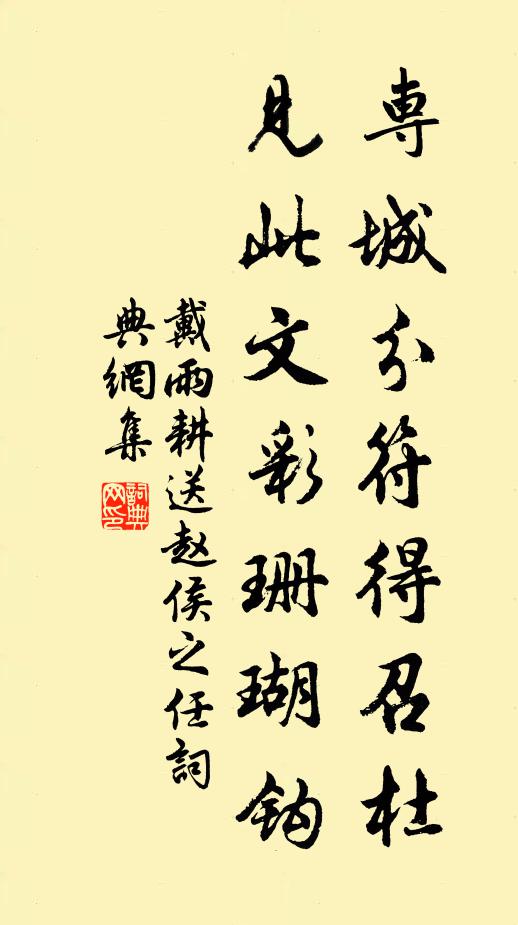 専城分符得召杜
見此文彩珊瑚鈎
戴雨耕送赵侯之任詞
典網集
詞典網印